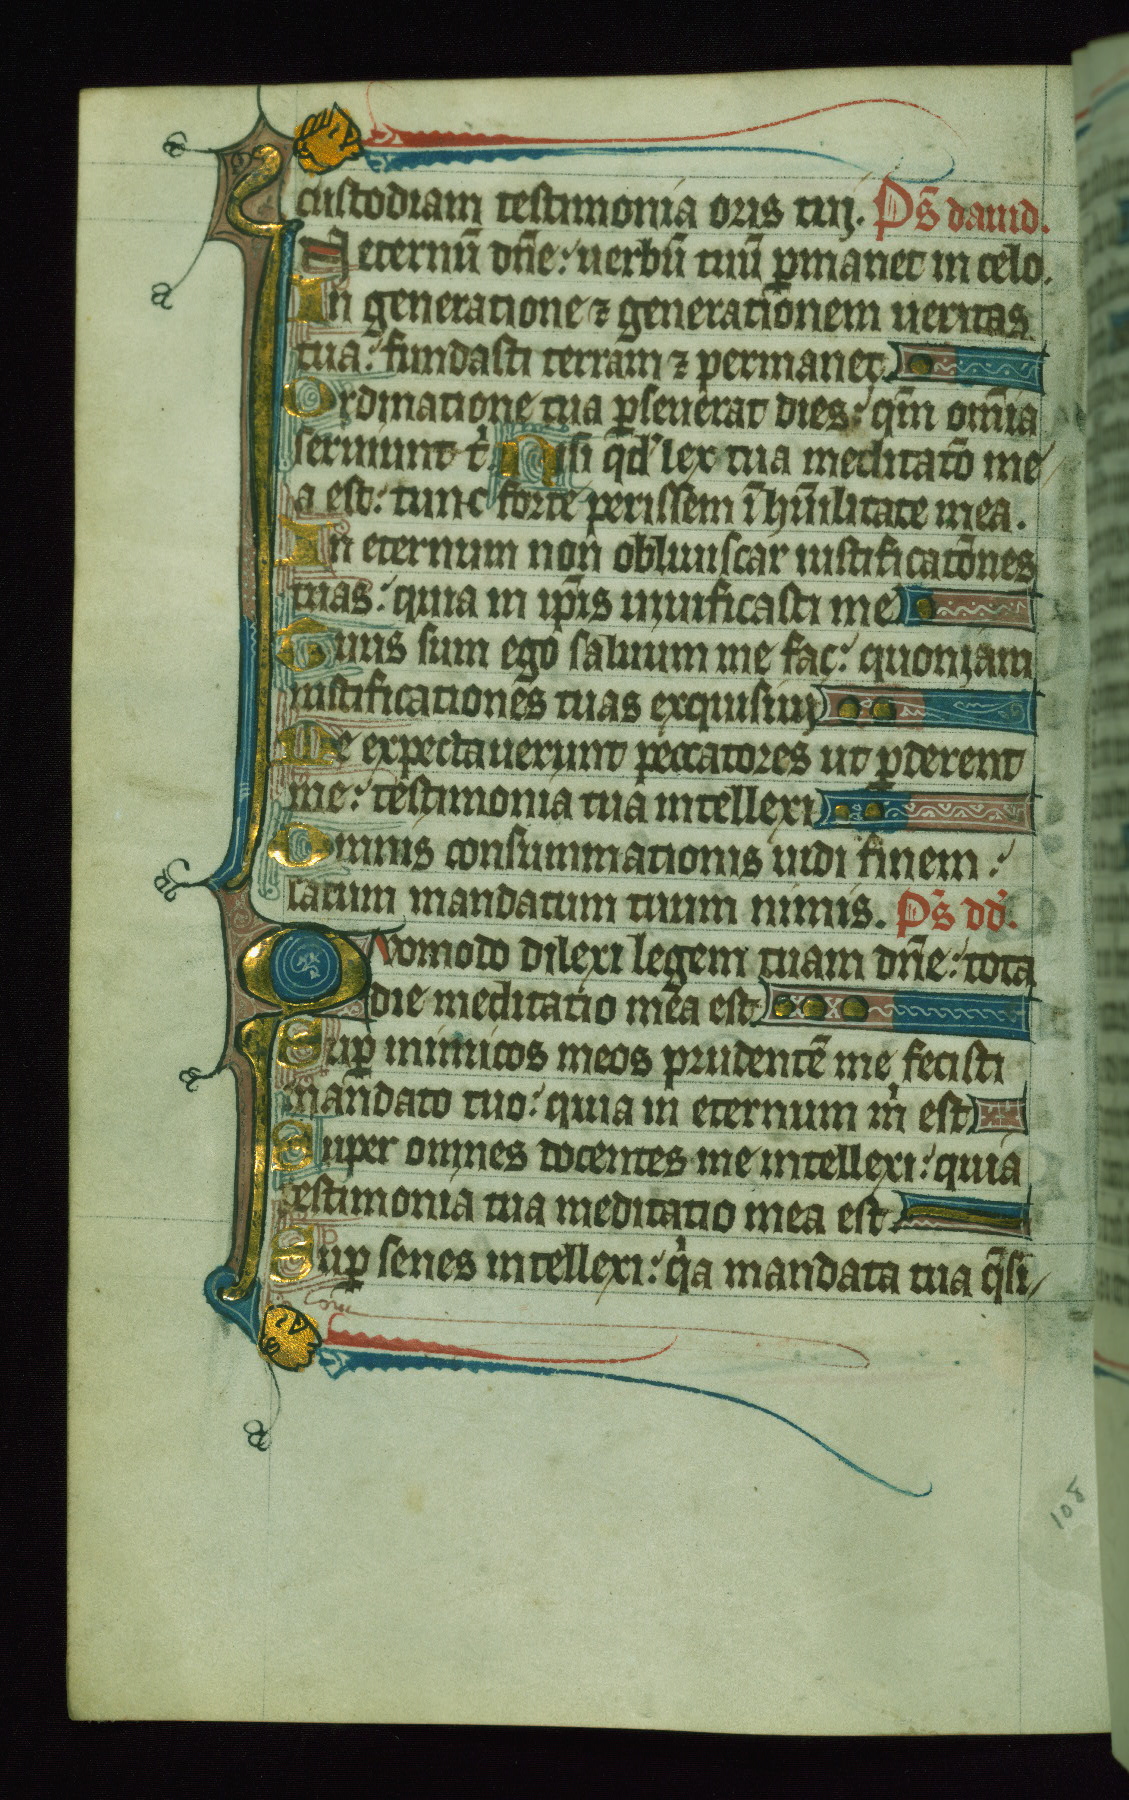 custodiam testimonia oris tuj. Ps̄ dauid.
In eternū dn̄e: uerbū tuū ꝑmanet in celo.
In generatione ⁊ generationem ueritas
tua: fundasti terram ⁊ permanet
Ordinatione tua ꝑseuerat dies: qm̄ om̄ia
seruiunt t̉. Nisi qd̓ lex tua meditatō me
a est: tunc forte perissem ī hūilitate mea.
In eternum non obliuiscar iustificatōnes
tuas: quia in ip̄is uiuificasti me
Tuus sum ego saluum me fac: quoniam
iustificationes tuas exquisiuj
Me expectauerunt peccatores ut ꝑderent
me: testimonia tua intellexi
Omnis consummationis uidi finem:
latum mandatum tuum nimis. Ps̄ dd̉.
Quomodo dilexi legem tuam dn̄e: tota
die meditatio mea est
Suꝑ inimicos meos prudentē me fecisti
mandato tuo: quia in eternum m̉ est
Super omnes docentes me intellexi: quia
testimonia tua meditatio mea est
Suꝑ senes intellexi: q̉a mandata tua q̄si
108